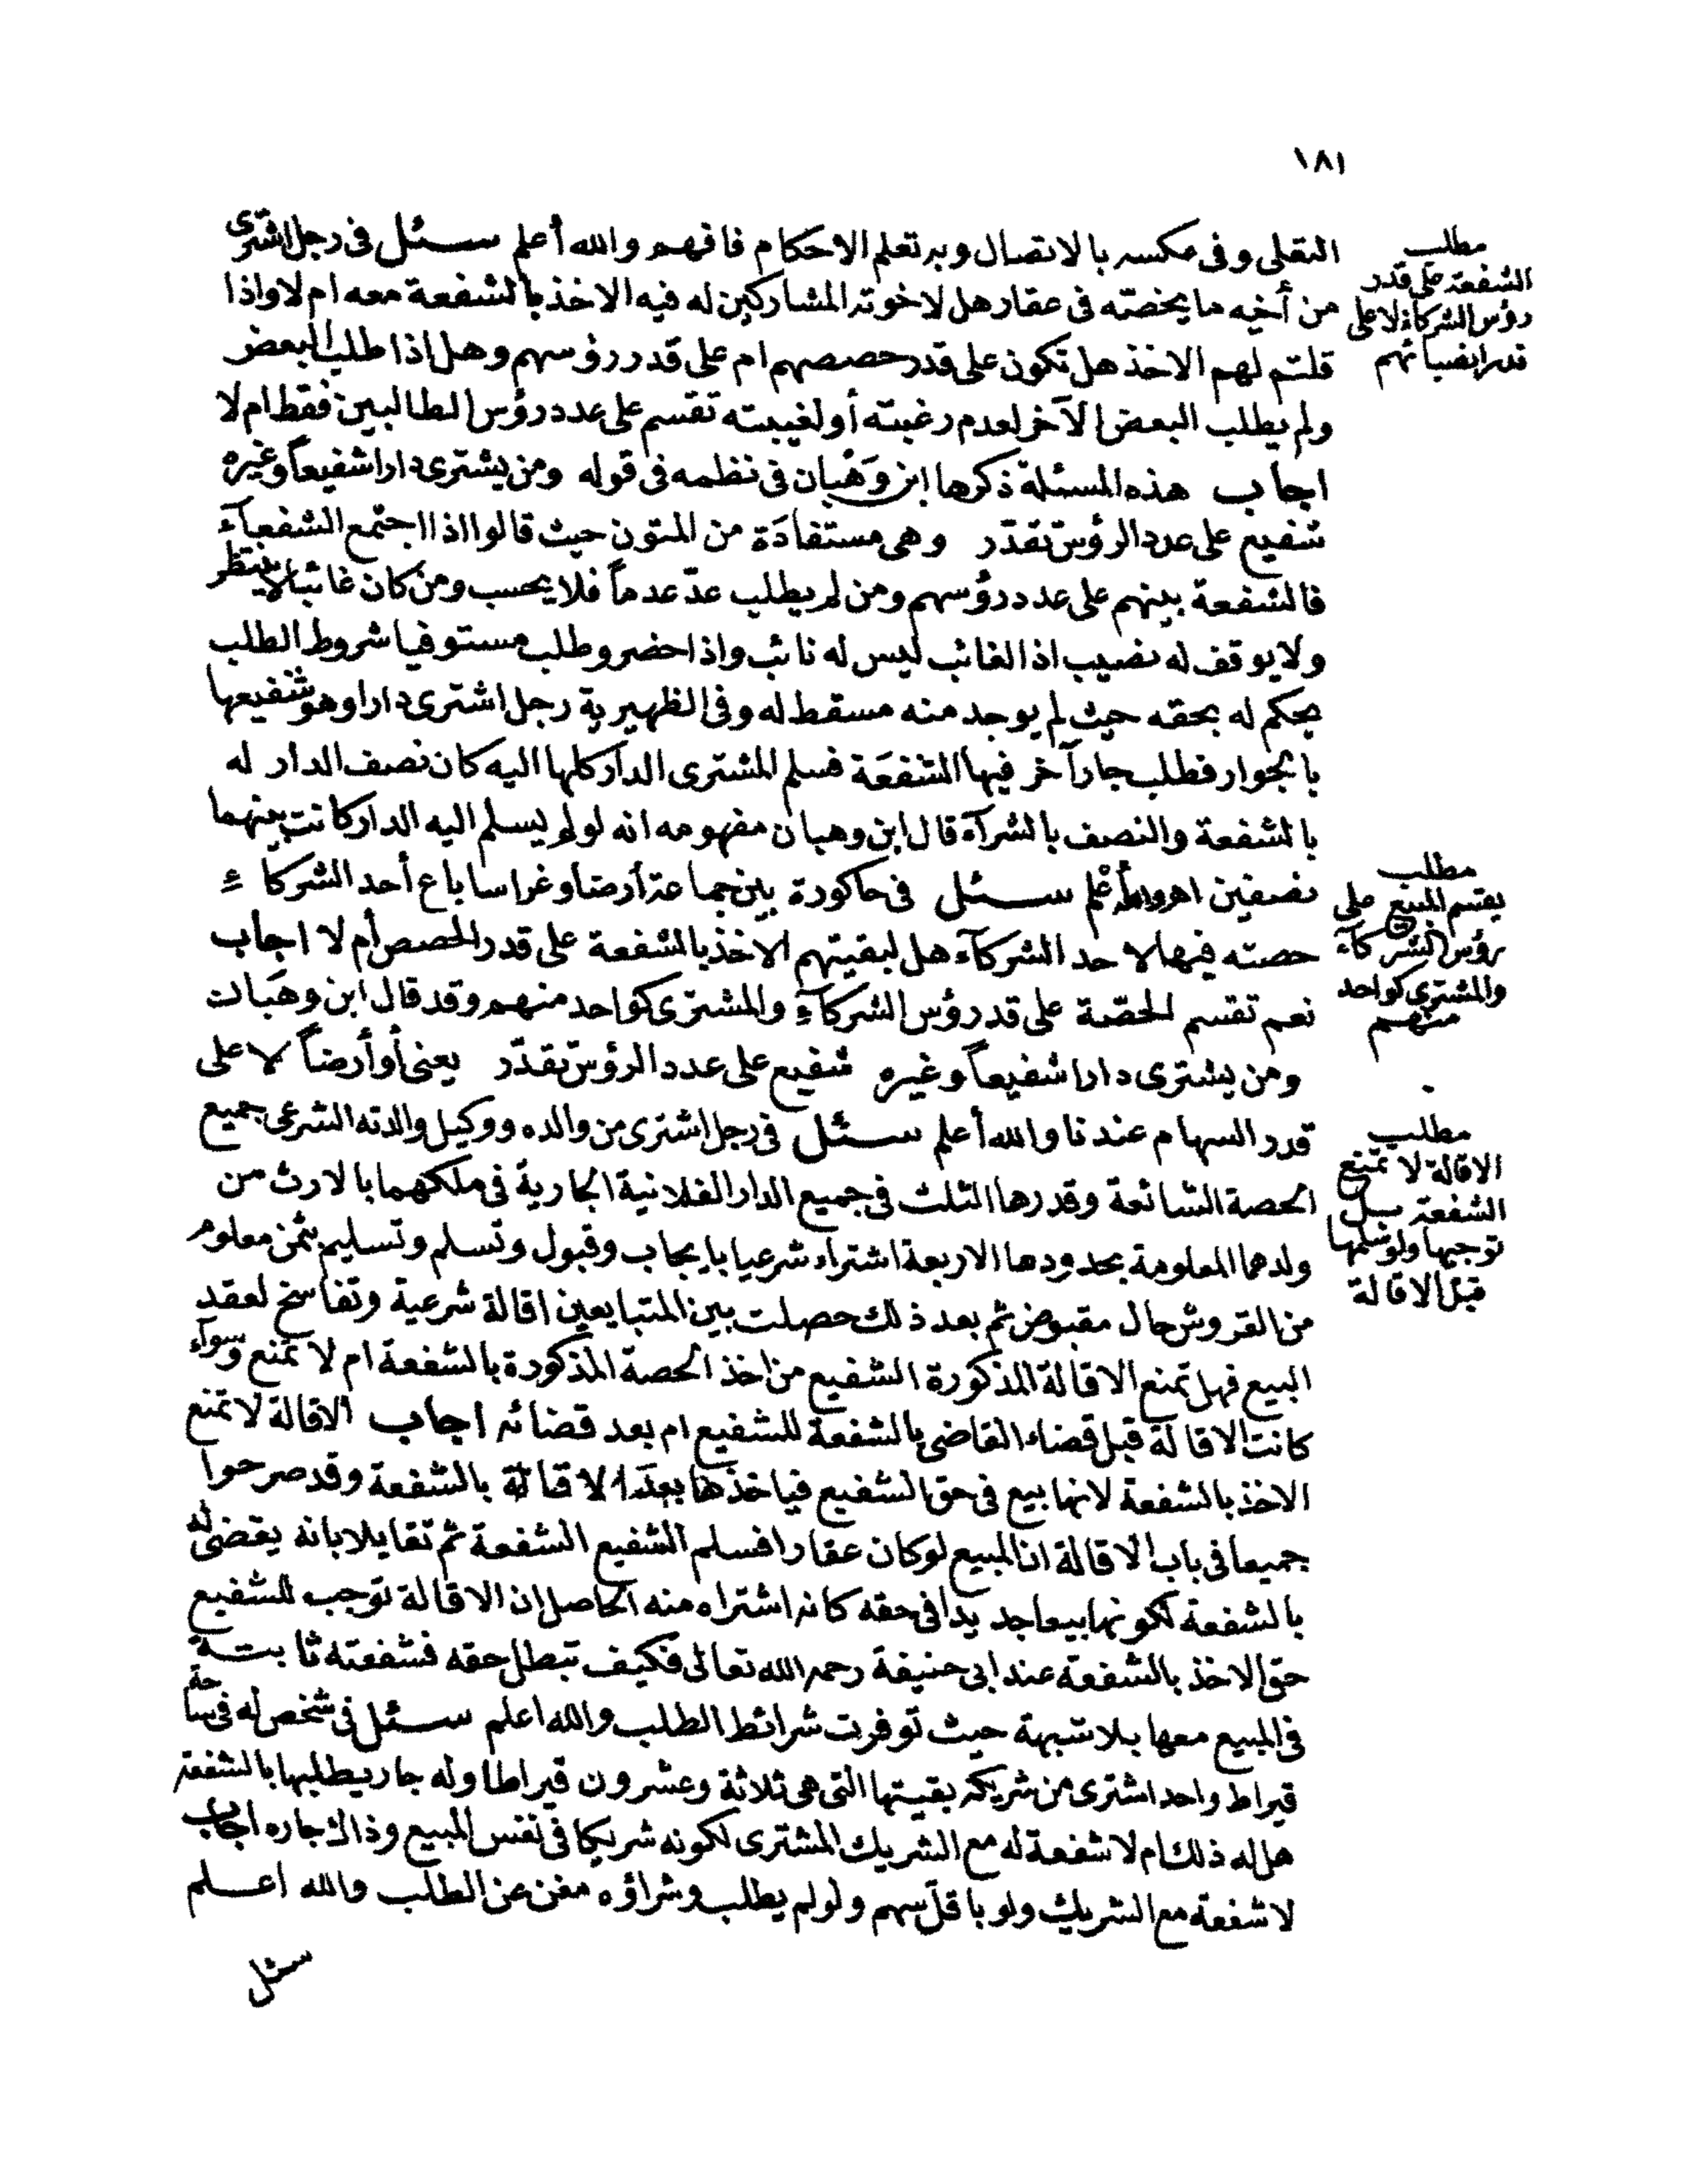 ١٨١
النقلى وفى مكسه بالاتصال وبه تعلم الاحكام فافهم والله أعلم سئل فى رجل اشترى
من أخيه ما يخصّه فى عقار هل لاخوته المشاركين له فيه الاخذ بالشفعة معه ام لا واذا
قلتم لهم الاخذ هل تكون على قدر حصصهم ام على قدر رؤسهم وهل اذا طلب البعض
ولم يطلب البعض الآخر لعدم رغبته أو لغيبته تقسم على عدد رؤس الطالبين فقط ام لا
اجاب هذه المسئلة ذكرها ابن وَهْبان فى نظمه فى قوله ومن يشترى دارا شفيعاً وغيره
شفيع على عدد الرؤس تقدّر وهى مستفادَة من المتون حيث قالوا اذا اجتمع الشفعآء
فالشفعة بينهم على عدد رؤسهم ومن لم يطلب عدّ عدماً فلا يحسب ومن كان غائبا لا ينتظر
ولا يوقف له نصيب اذا الغائب ليس له نائب واذا حضر وطلب مستوفيا شروط الطلب
يحكم له بحقه حيث لم يوجد منه مسقط له وفى الظهيرية رجل اشترى دارا وهو شفيعها
بالجوار فطلب جار آخر فيها الشفعَة فسلم المشترى الدار كلها اليه كان نصف الدار له
بالشفعة والنصف بالشرآء قال ابن وهبان مفهومه انه لو لم يسلم اليه الدار كانت بينهما
نصفين اهـ والله أعْلم سئل فى حاكورة بين جماعة أرضا وغراسا باع أحد الشركاء
حصته فيها لاحد الشركآء هل لبقيتهم الاخذ بالشفعة على قدر الحصص أم لا اجاب
نعم تقسم الحصّة على قدر رؤس الشركآء والمشترى كواحد منهم وقد قال ابن وهَبان
ومن يشترى دارا شفيعاً وغيره شفيع على عدد الرؤس تقدّر يعنى أو أرضاً لا على
قدر السهام عندنا والله أعلم سئل فى رجل اشترى من والده ووكيل والدته الشرعى جميع
الحصة الشائعة وقدرها الثلث فى جميع الدار الفلانية الجارية فى ملكهما بالارث من
ولدهما المعلومة بحدودها الاربعة اشتراء شرعيا بايجاب وقبول وتسلم وتسليم بثمن معلوم
من القروش حال مقبوض ثم بعد ذلك حصلت بين المتبايعين اقالة شرعية وتفاسخ لعقد
البيع فهل تمنع الاقالة المذكورة الشفيع من اخذ الحصة المذكورة بالشفعة ام لا تمنع وسوآء
كانت الاقالة قبل قضاء القاضى بالشفعة للشفيع ام بعد قضائه اجاب الاقالة لا تمنع
الاخذ بالشفعة لانها بيع فى حق الشفيع فياخذها بعد الاقالة بالشفعة وقد صرحوا
جميعا فى باب الاقالة ان المبيع لو كان عقارا فسلم الشفيع الشفعة ثم تقايلا بانه يقضى له
بالشفعة لكونها بيعا جديدا فى حقه كانه اشتراه منه الحاصل ان الاقالة توجب للشفيع
حق الاخذ بالشفعة عند ابى حنيفة رحمه الله تعالى فكيف تبطل حقه فشفعته ثابتة
فى المبيع معها بلا شبهة حيث توفرت شرائط الطلب والله اعلم سئل فى شخص له فى ساحة
قيراط واحد اشترى من شريكه بقيتها التى هى ثلاثة وعشرون قيراطا وله جار يطلبها بالشفعة
هل له ذلك ام لا شفعة له مع الشريك المشترى لكونه شريكا فى نفس المبيع وذاك جاره اجاب
لا شفعة مع الشريك ولو باقلّ سهم ولو لم يطلب وشراؤه مغن عن الطلب والله اعلم
سئل
مطلب
الشفعة على قدر
رؤس الشركاء لا على
قدر انصبائهم
مطلب
يقسم المبيع على
رؤس الشركآء
والمشترى كواحد
منهم
مطلب
الاقالة لا تمنع
الشفعة بل
توجبها ولو سلمها
قبل الاقالة